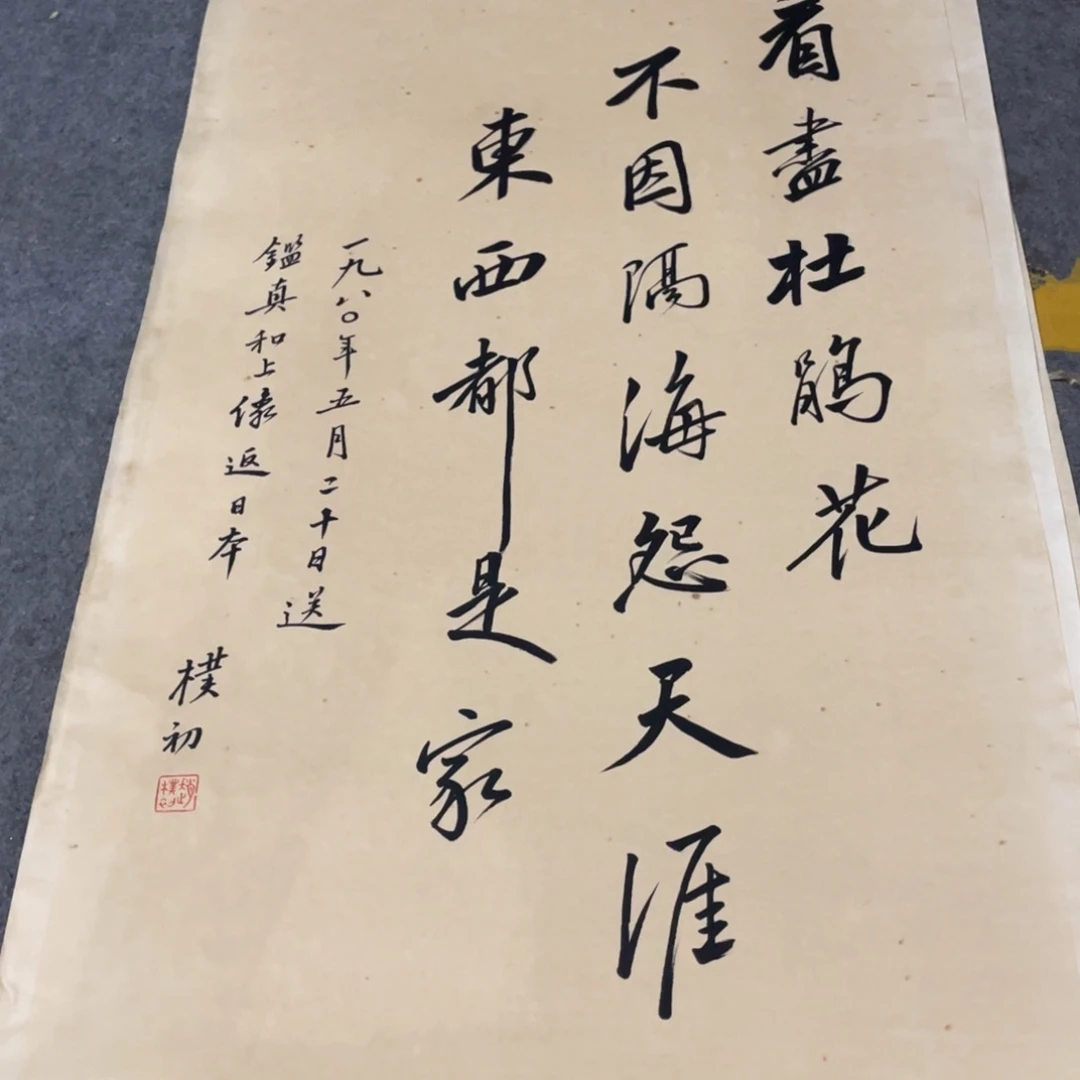 看盡杜鵑花
不因隔海怨天涯
東西都是家
一九八〇年五月二十日送
鑑真和上像返日本
樸初
趙樸初